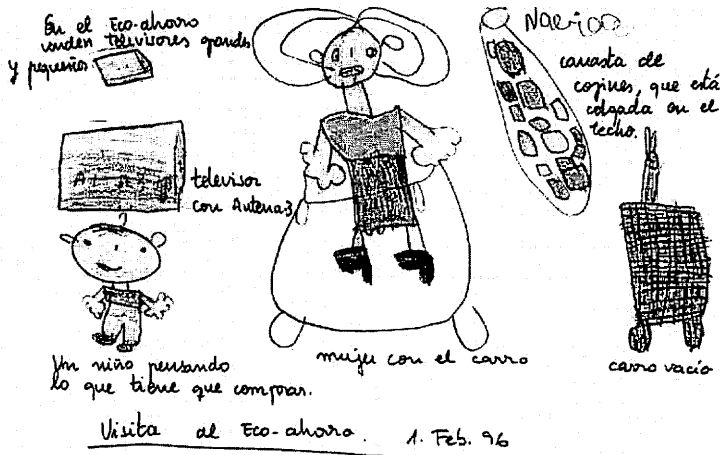 En el Eco-ahorro
venden televisores grandes
y pequeños
canasta de
cojines, que está
colgada en el
techo.
televisor
con Antena3
Un niño pensando
lo que tiene que comprar.
mujer con el carro
carro vacío
Visita al Eco-ahorro. 1. Feb. 96